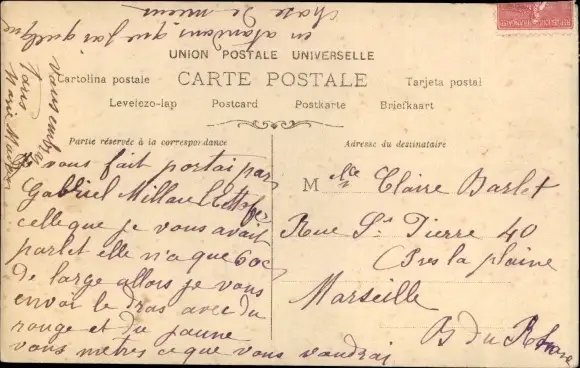 chose de mieux
en atandans que jais quelque
UNION POSTALE UNIVERSELLE
Cartolina postale CARTE POSTALE Tarjeta postal
Levelezo-lap Postcard Postkarte Briefkaart
Partie réservée à la correspondance
Adresse du destinataire
Je vous fait portai par
Gabriel Millau
celle que je vous avait
parlet elle n'a que 60c
de large allors je vous
envoi le dras avec du
rouge et du jaune
vous metres ce que vous vaudrai
vous embra
tous
Marie
Mlle Claire Barlet
Rue St Pierre 40
Près la plaine
Marseille
B du Rhone